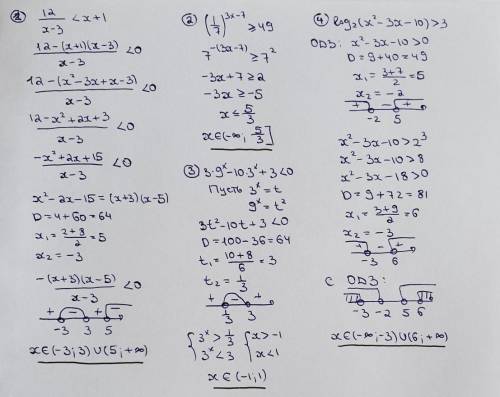 1) 12/(x-3) < x+1
(12-(x+1)(x-3))/(x-3) < 0
(12-(x²-3x+x-3))/(x-3) < 0
(12-x²+2x+3)/(x-3) < 0
(-x²+2x+15)/(x-3) < 0
x²-2x-15=(x+3)(x-5)
D=4+60=64
x₁=(2+8)/2=5
x₂=-3
(-(x+3)(x-5))/(x-3) < 0
+ - + -
-3 3 5
x∈(-3;3)∪(5;+∞)
2) (1/7)^(3x-7) ≥ 49
7^(-(3x-7)) ≥ 7²
-3x+7≥2
-3x≥-5
x≤5/3
x∈(-∞; 5/3]
3) 3·9ˣ-10·3ˣ+3<0
Пусть 3ˣ=t
9ˣ=t²
3t²-10t+3<0
D=100-36=64
t₁=(10+8)/6=3
t₂=1/3
+ - +
1/3 3
{3ˣ>1/3 {x>-1
3ˣ<3 x<1
x∈(-1;1)
4) log₂(x²-3x-10)>3
ОДЗ: x²-3x-10>0
D=9+40=49
x₁=(3+7)/2=5
x₂=-2
+ - +
-2 5
x²-3x-10>2³
x²-3x-10>8
x²-3x-18>0
D=9+72=81
x₁=(3+9)/2=6
x₂=-3
+ - +
-3 6
С ОДЗ:
-3 -2 5 6
x∈(-∞;-3)∪(6;+∞)